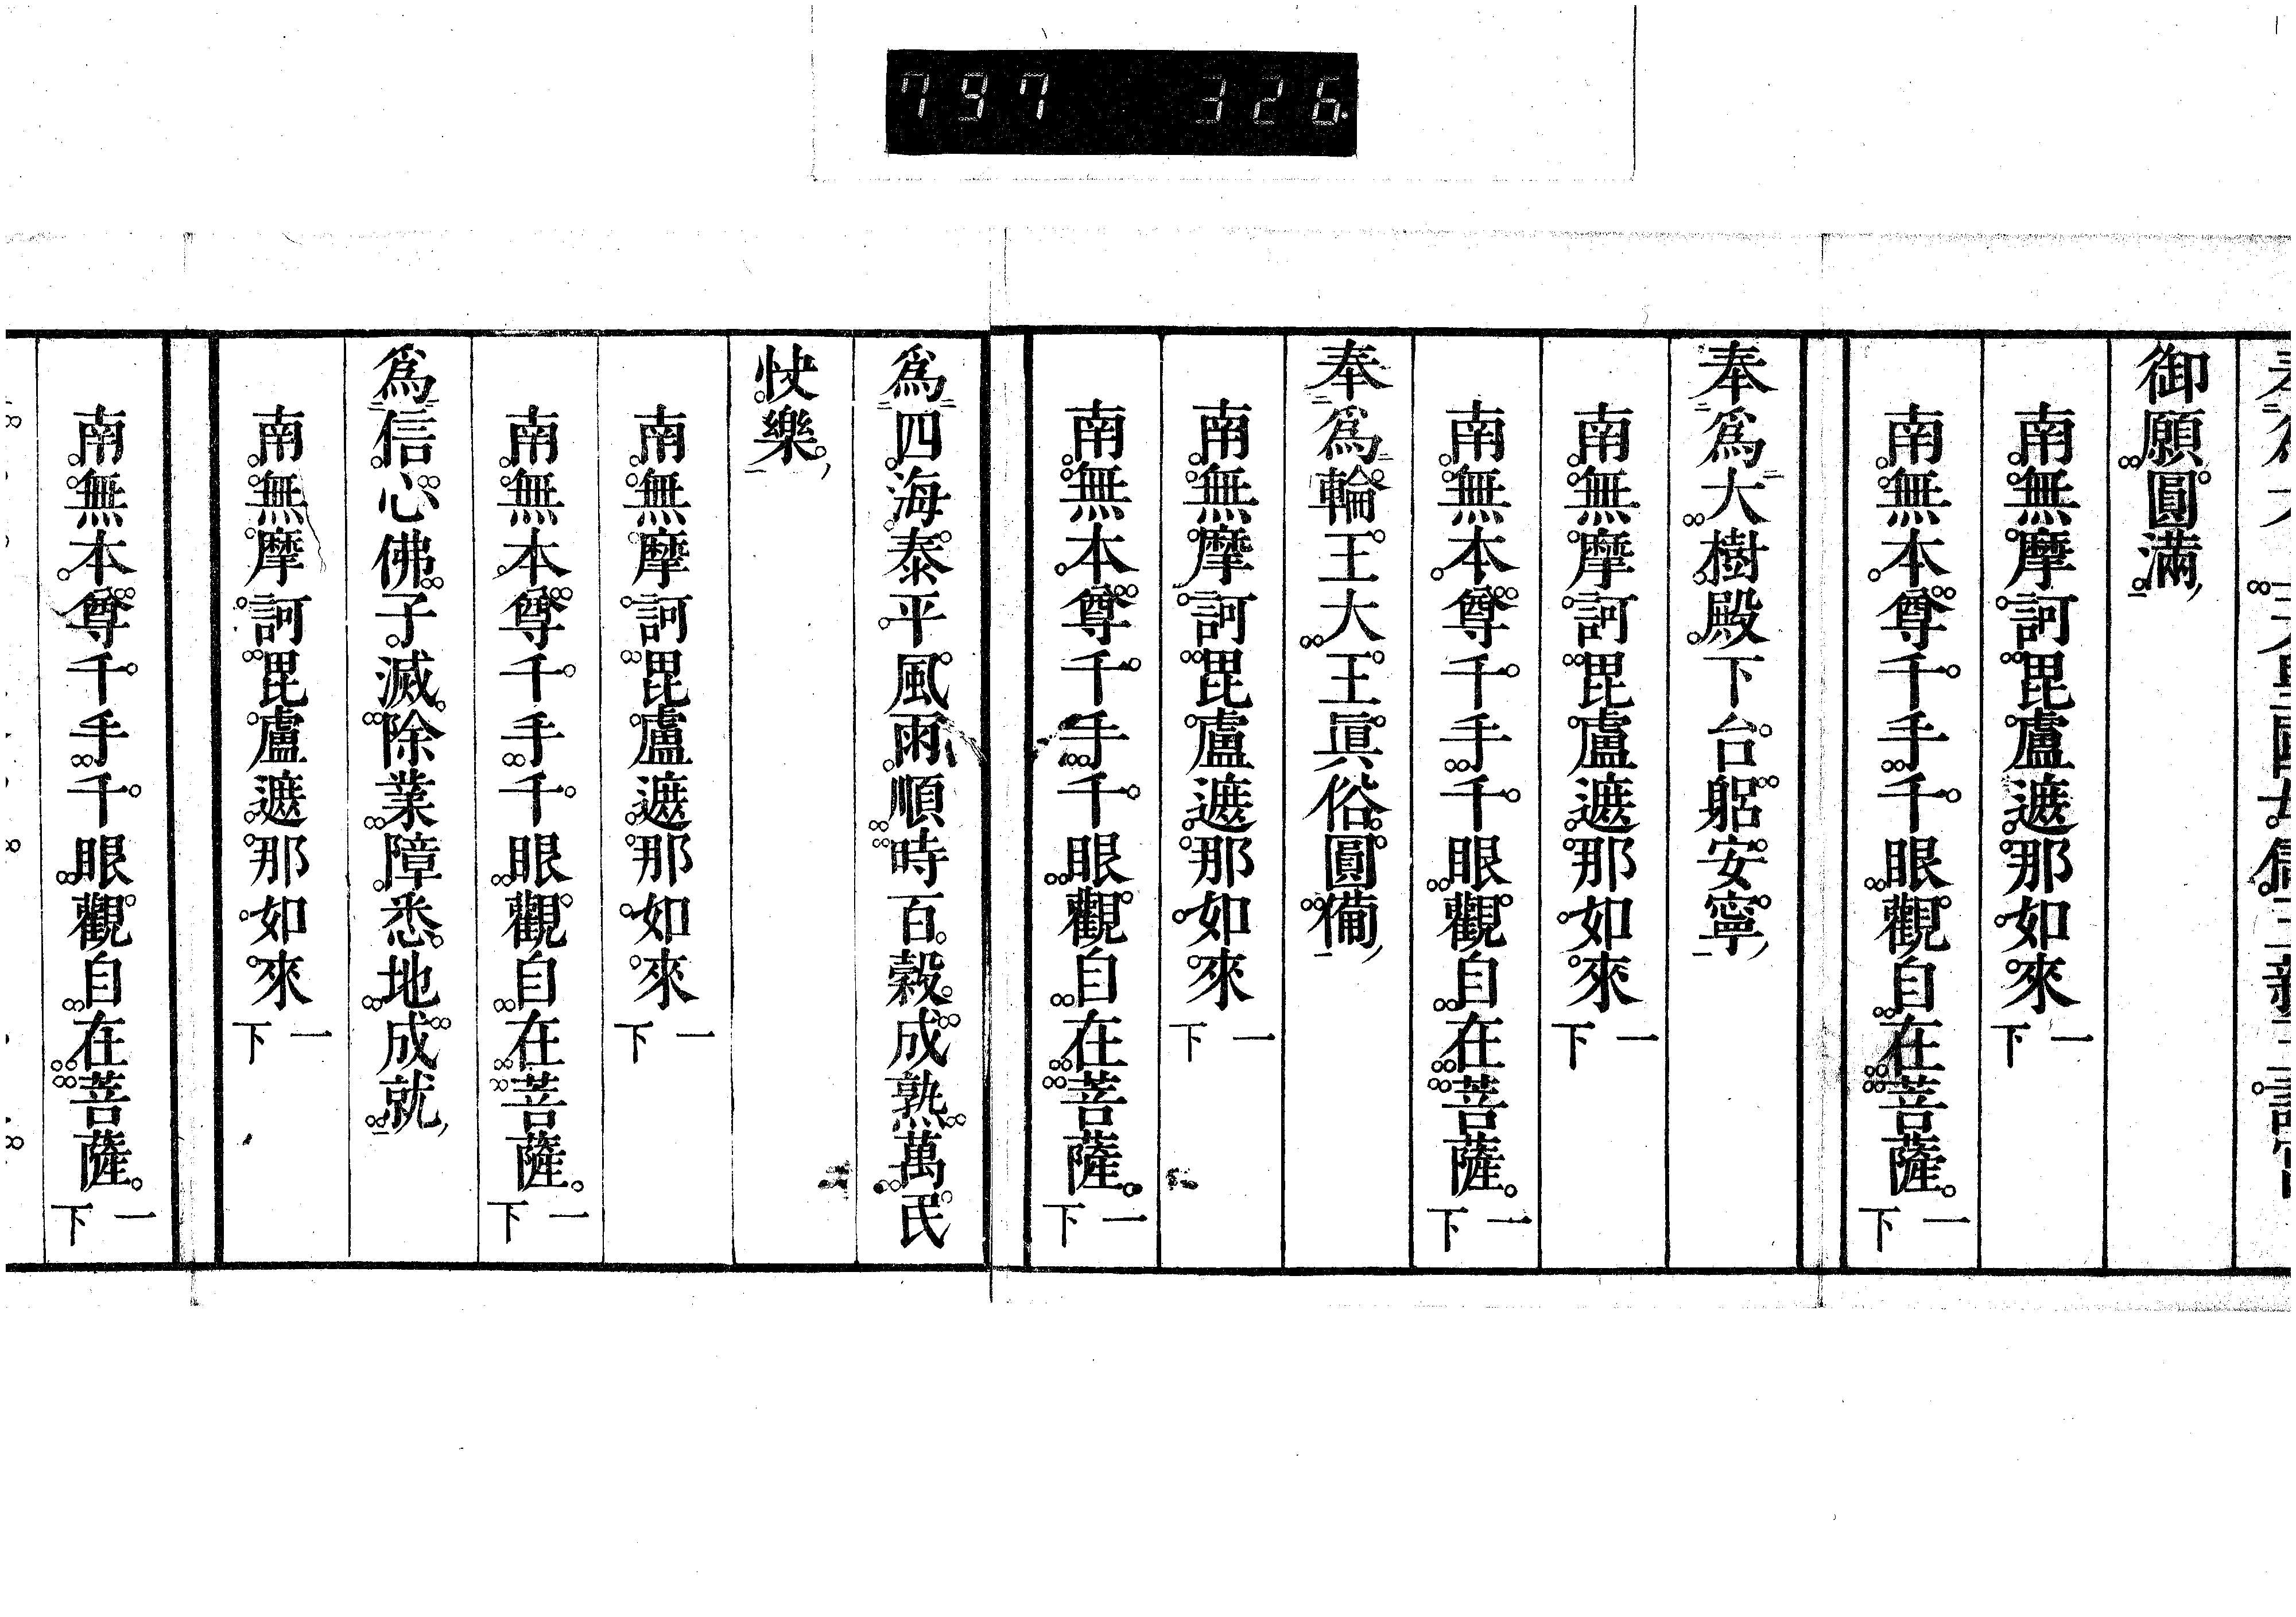 797 326.
御願圓滿
南無摩訶毘盧遮那如來 一下
南無本尊千手千眼觀自在菩薩 一下
奉爲大樹殿下台躬安寧
南無摩訶毘盧遮那如來 一下
南無本尊千手千眼觀自在菩薩 一下
奉爲輪王大王眞俗圓備
南無摩訶毘盧遮那如來 一下
南無本尊千手千眼觀自在菩薩 一下
爲四海泰平風雨順時百穀成熟萬民
快樂
南無摩訶毘盧遮那如來 一下
南無本尊千手千眼觀自在菩薩 一下
爲信心佛子滅除業障悉地成就
南無摩訶毘盧遮那如來 一下
南無本尊千手千眼觀自在菩薩 一下